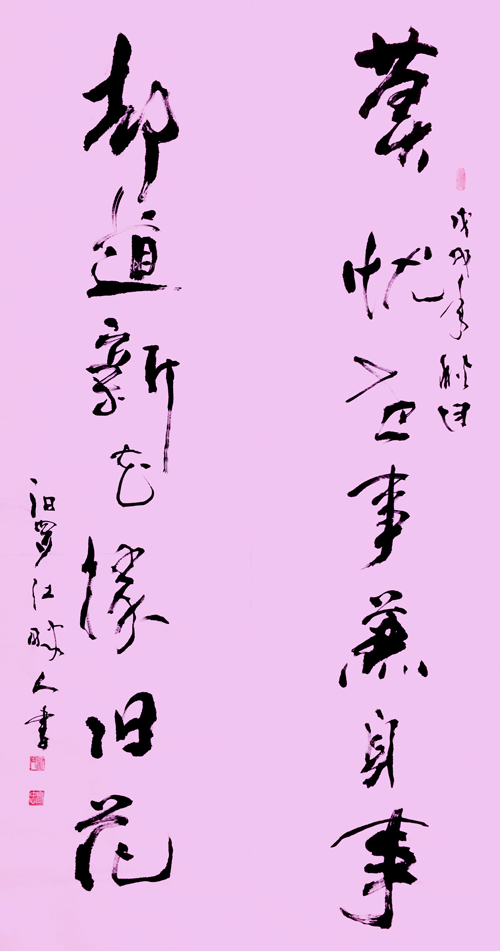 戊戌年
莫忧世事兼身事
却道新花旧花
汨罗江畔人书